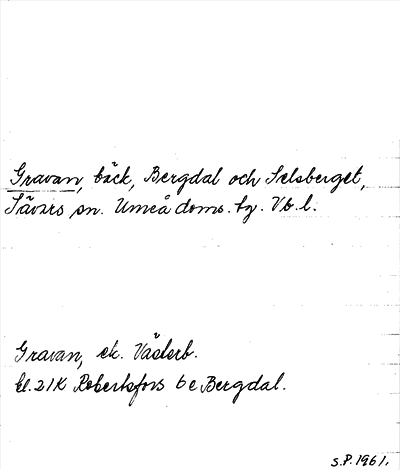 Gravan, bäck, Bergdal och Selsberget,
Sävars sn. Umeå doms. tg. Vb. l.
Gravan, ek. Västerb.
bl. 21K Robertsfors 6 e Bergdal.
S.P. 1961.